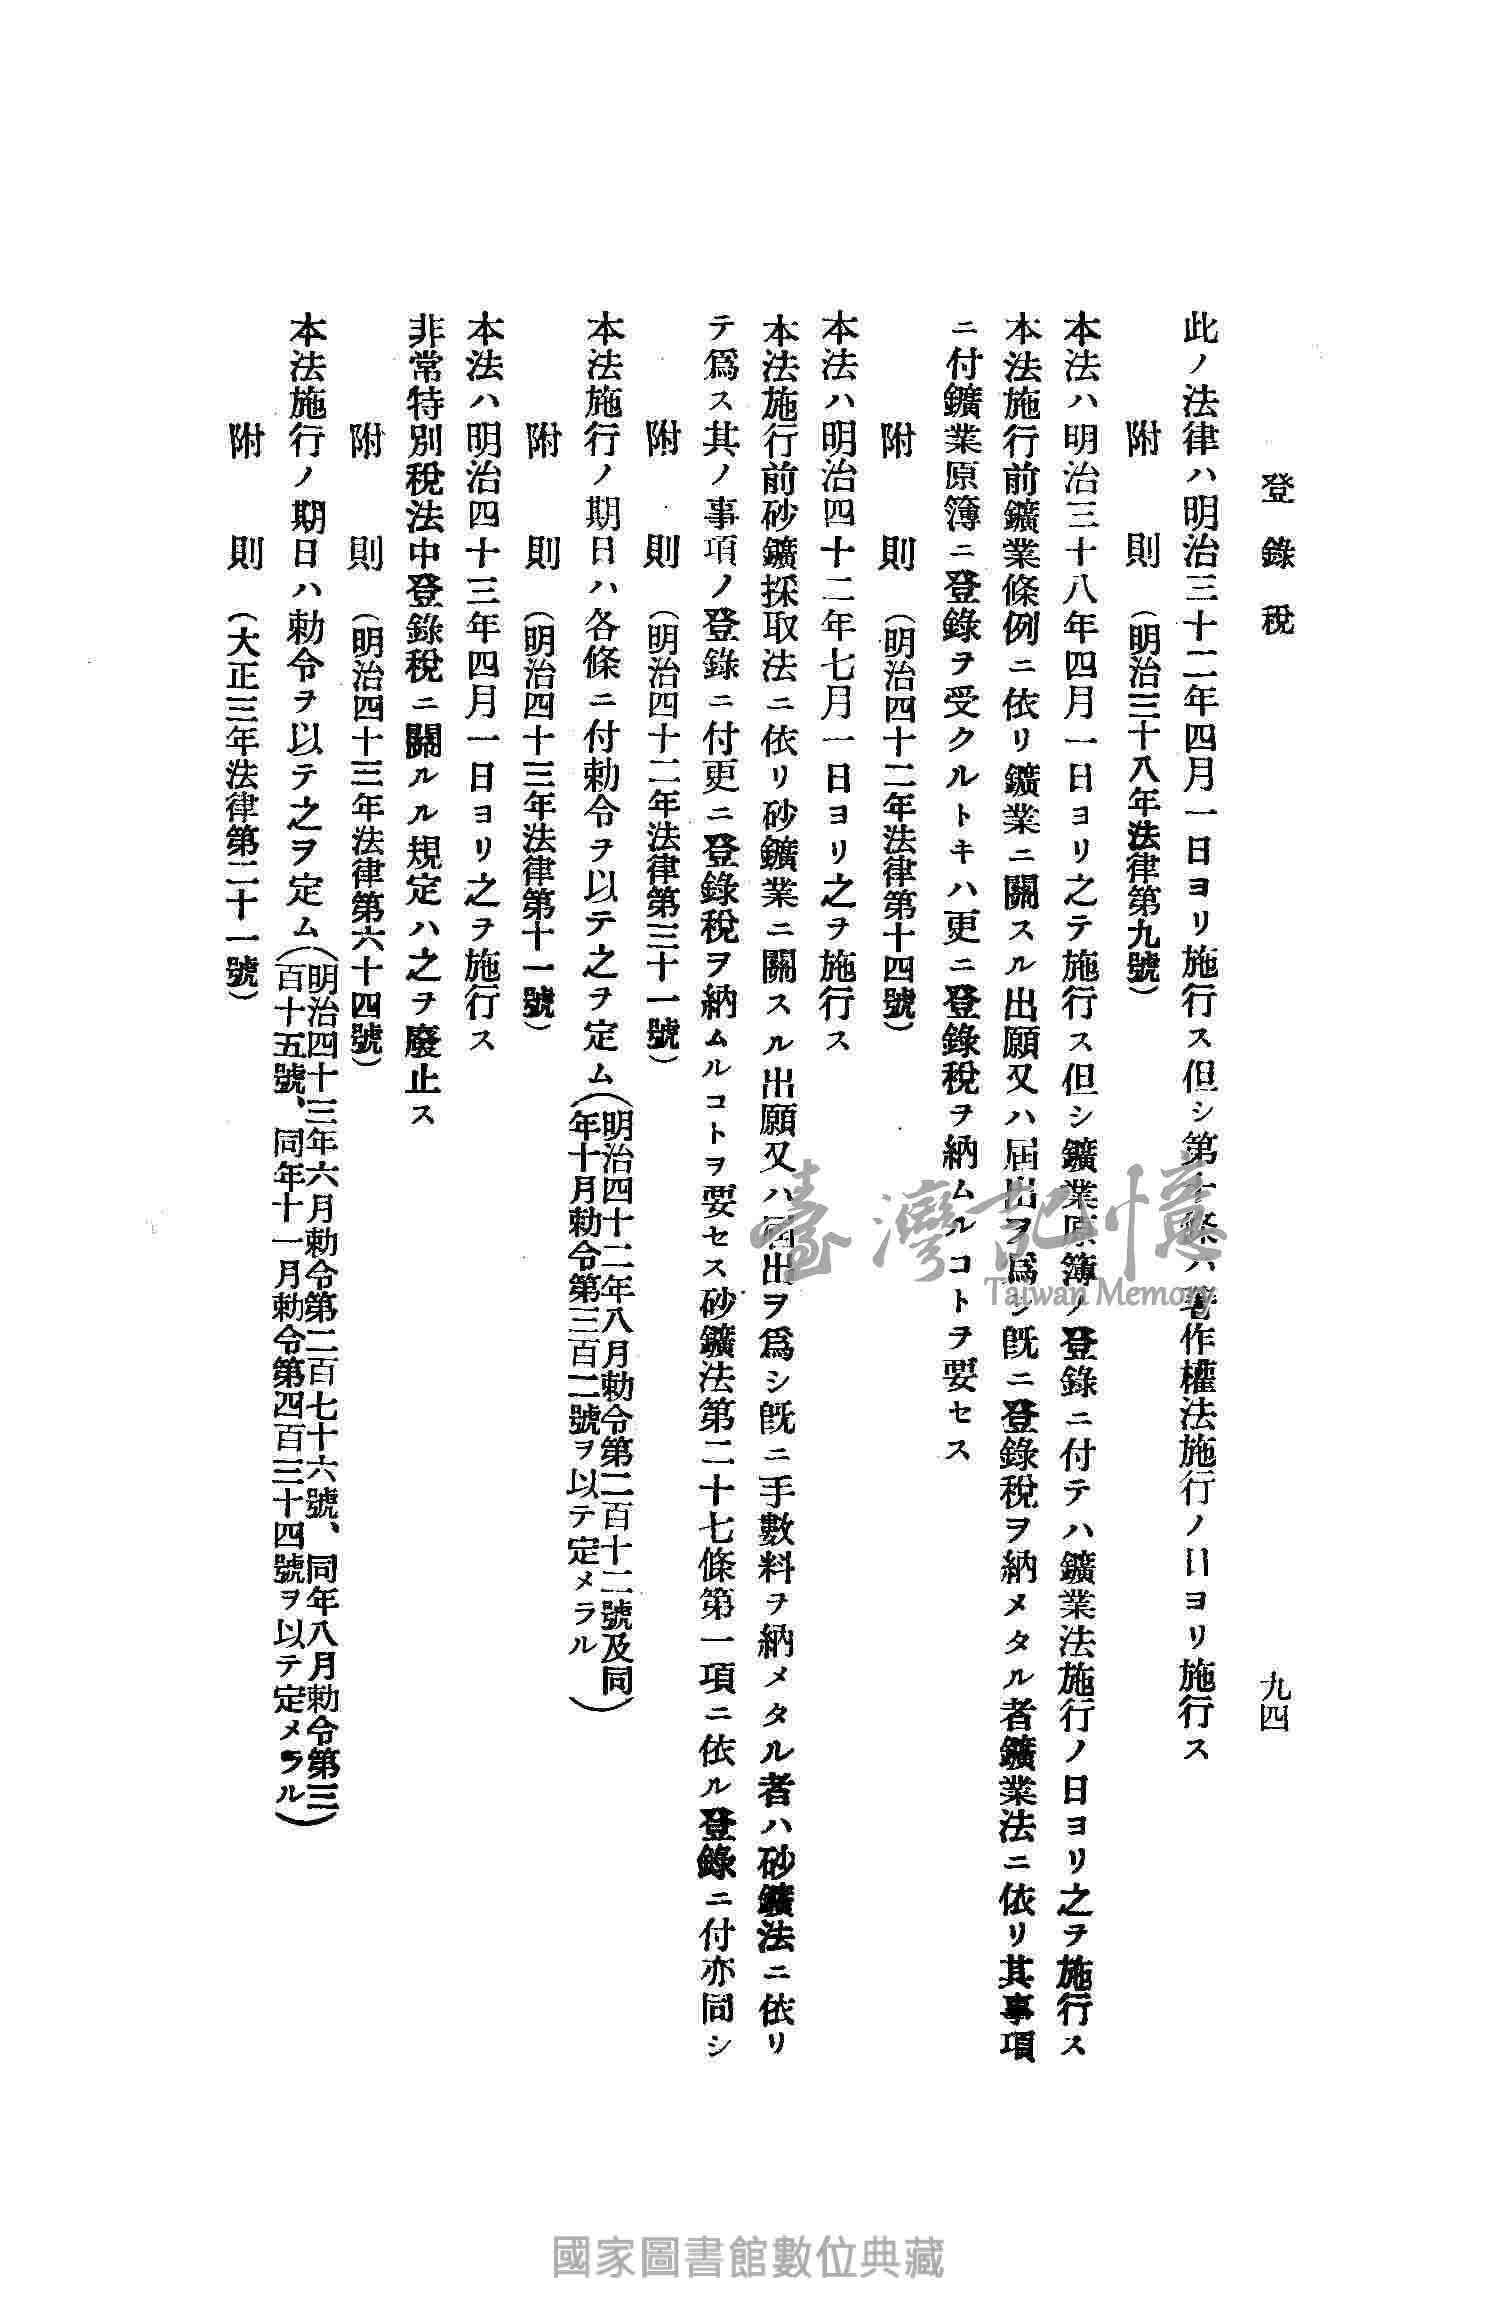 登錄稅
九四
此ノ法律ハ明治三十二年四月一日ヨリ施行ス但シ第十條ハ著作權法施行ノ日ヨリ施行ス
附則(明治三十八年法律第九號)
本法ハ明治三十八年四月一日ヨリ之テ施行ス但シ鑛業原簿ノ登錄ニ付テハ鑛業法施行ノ日ヨリ之ヲ施行ス
本法施行前鑛業條例ニ依リ鑛業ニ關スル出願又ハ屆出ヲ爲シ旣ニ登錄稅ヲ納メタル者鑛業法ニ依リ其事項
ニ付鑛業原簿ニ登錄ヲ受クルトキハ更ニ登錄稅ヲ納ムルコトヲ要セス
附則(明治四十二年法律第十四號)
本法ハ明治四十二年七月一日ヨリ之ヲ施行ス
本法施行前砂鑛採取法ニ依リ砂鑛業ニ關スル出願又ハ屆出ヲ爲シ旣ニ手數料ヲ納メタル者ハ砂鑛法ニ依リ
テ爲ス其ノ事項ノ登錄ニ付更ニ登錄稅ヲ納ムルコトヲ要セス砂鑛法第二十七條第一項ニ依ル登錄ニ付亦同シ
附則(明治四十二年法律第三十一號)
本法施行ノ期日ハ各條ニ付勅令ヲ以テ之ヲ定ム(明治四十二年八月勅令第二百十二號及同
年十月勅令第三百二號ヲ以テ定メラル)
附則(明治四十三年法律第十一號)
本法ハ明治四十三年四月一日ヨリ之ヲ施行ス
非常特別稅法中登錄稅ニ關ルル規定ハ之ヲ廢止ス
附則(明治四十三年法律第六十四號)
本法施行ノ期日ハ勅令ヲ以テ之ヲ定ム(明治四十三年六月勅令第二百七十六號、同年八月勅令第三
百十五號、同年十一月勅令第四百三十四號ヲ以テ定メラル)
附則(大正三年法律第二十一號)
臺灣記憶
Taiwan Memory
國家圖書館數位典藏